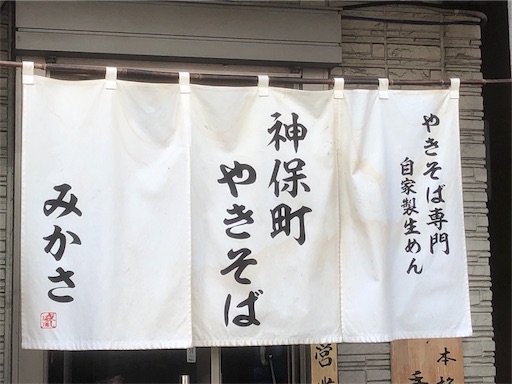 やきそば専門
自家製生めん
神保町
やきそば
みかさ
営
本